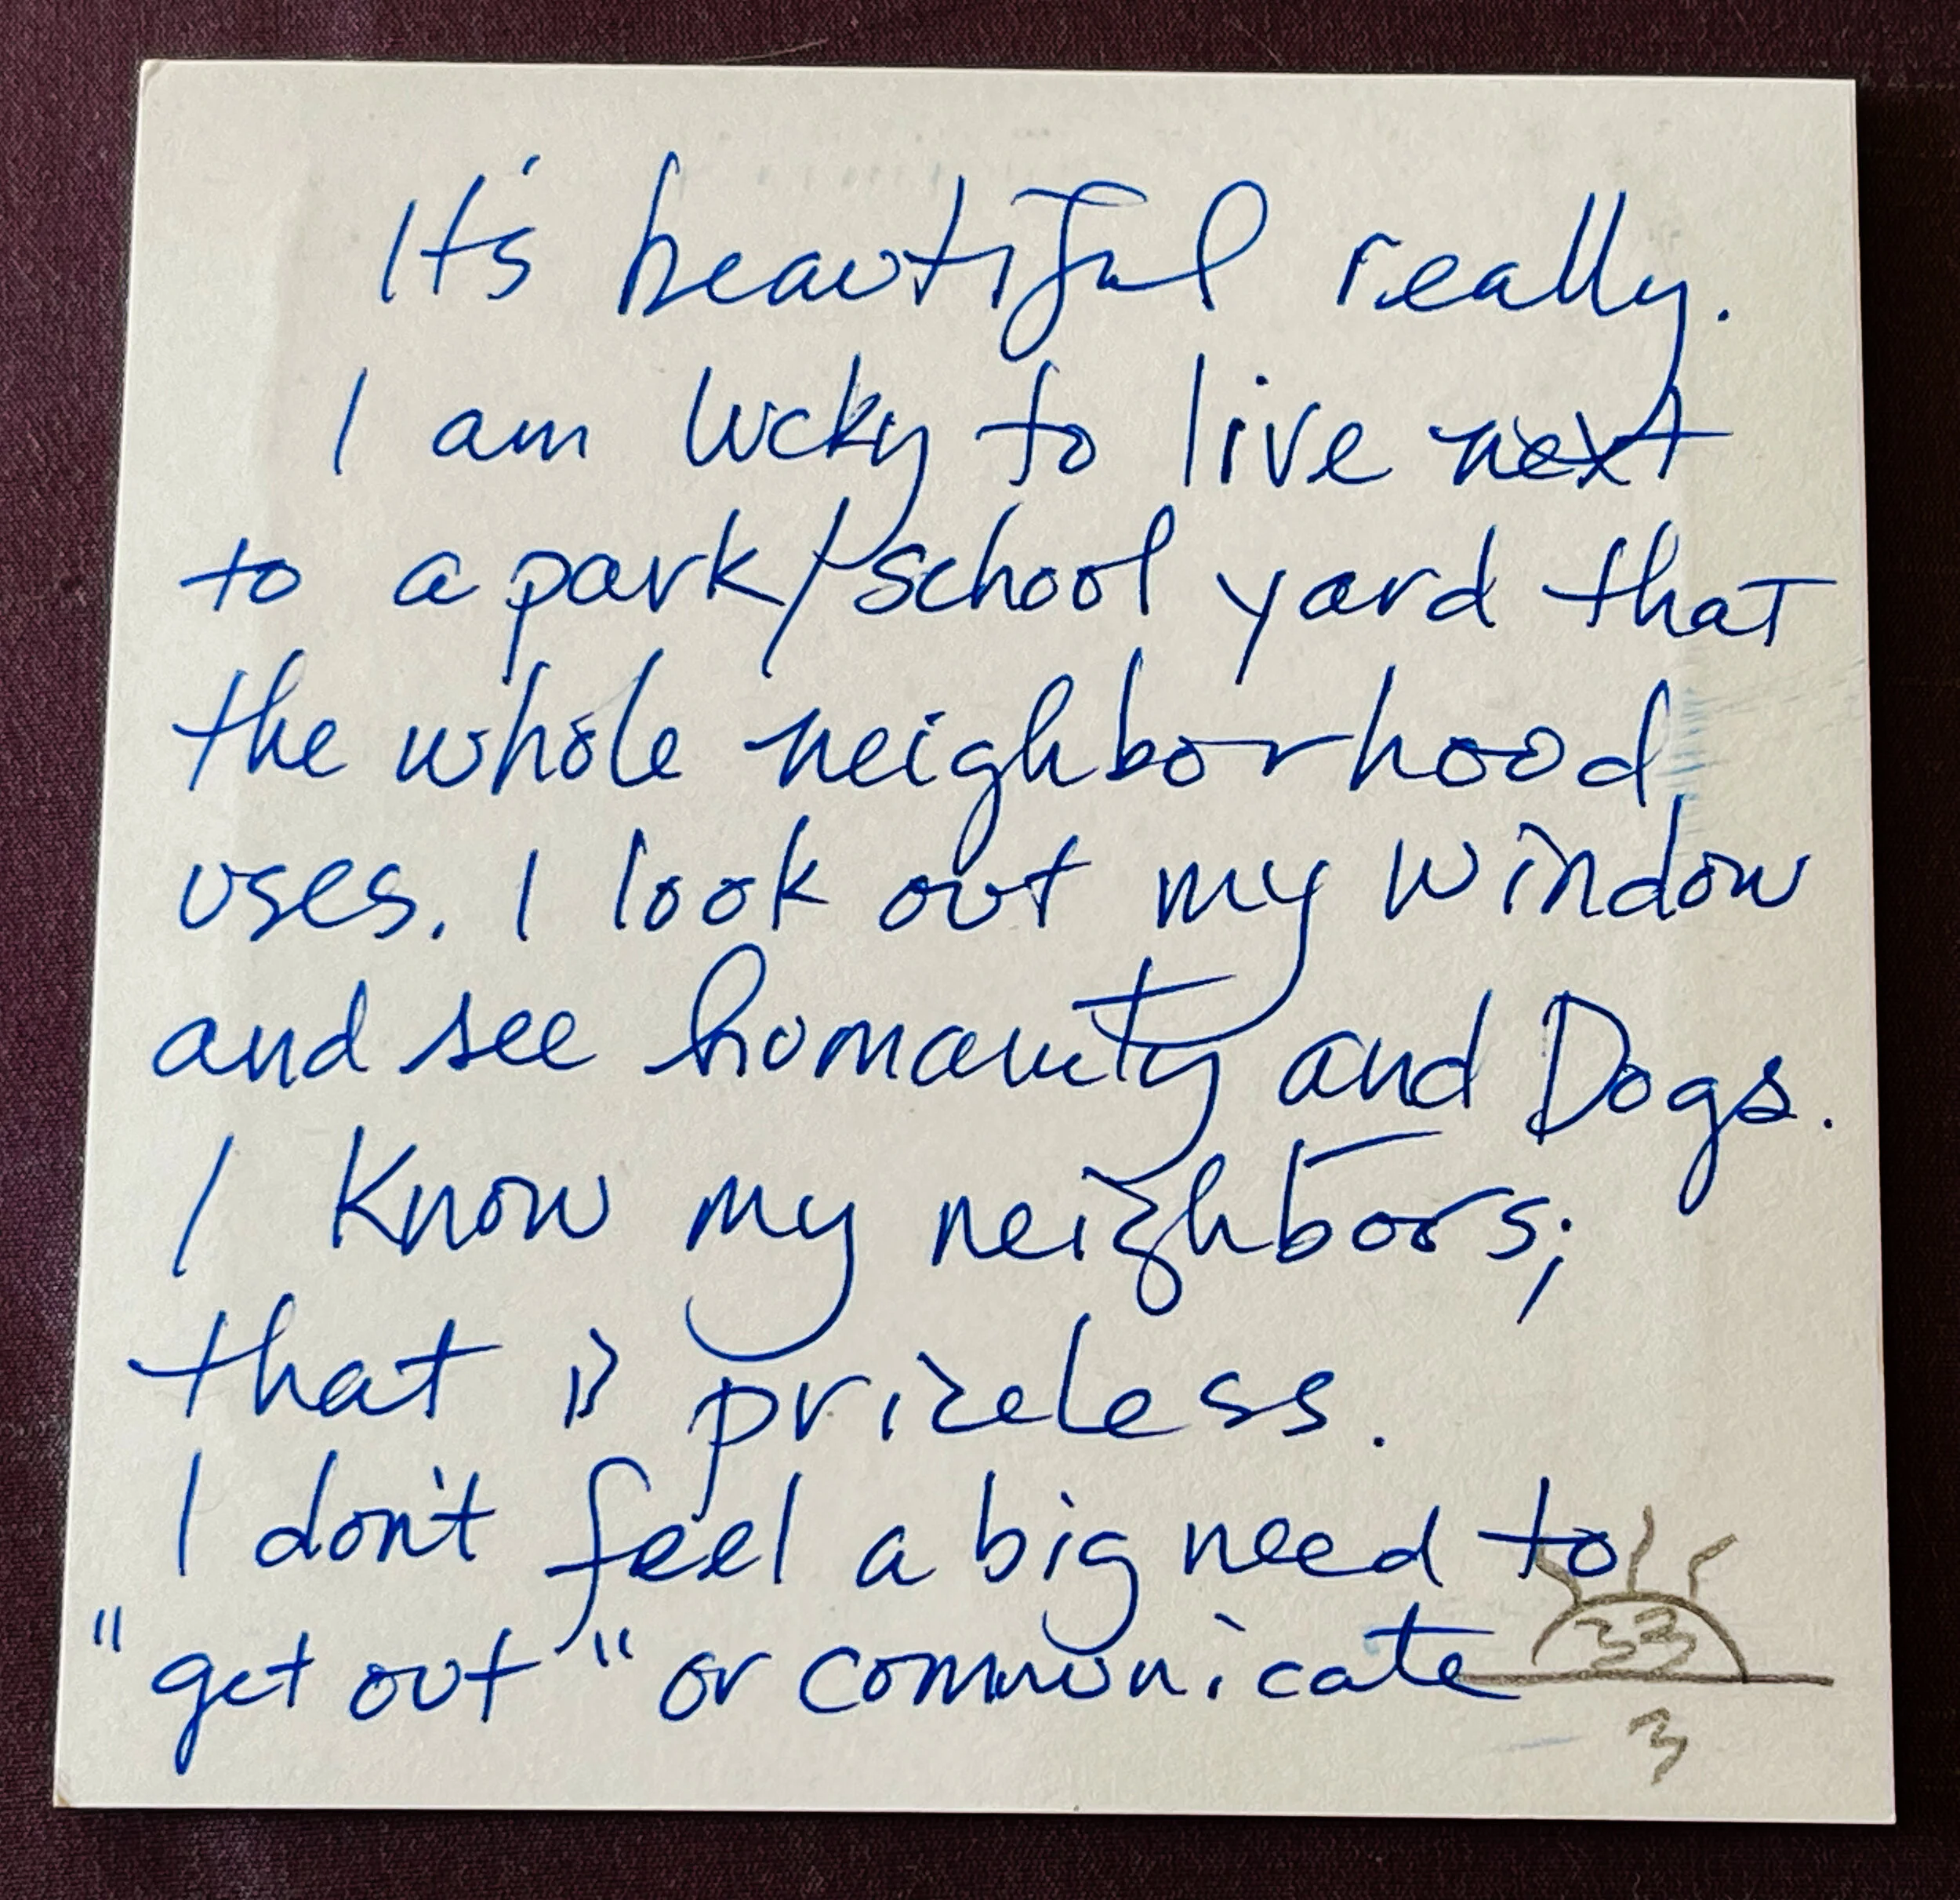 It's beautiful really.
I am lucky to live next
to a park/school yard that
the whole neighborhood
uses. I look out my window
and see humanity and Dogs.
I know my neighbors;
that is priceless.
I don't feel a big need to
"get out" or communicate
33
3